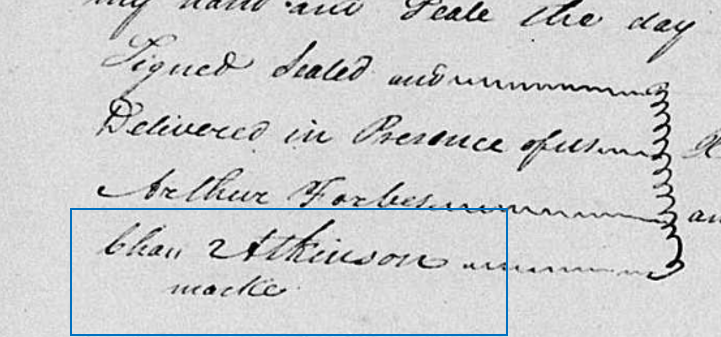 my hand and Seale the day
Signed Sealed and
Delivered in Presence of us
Arthur Forbes
Chan 2 Atkinson
marke
an